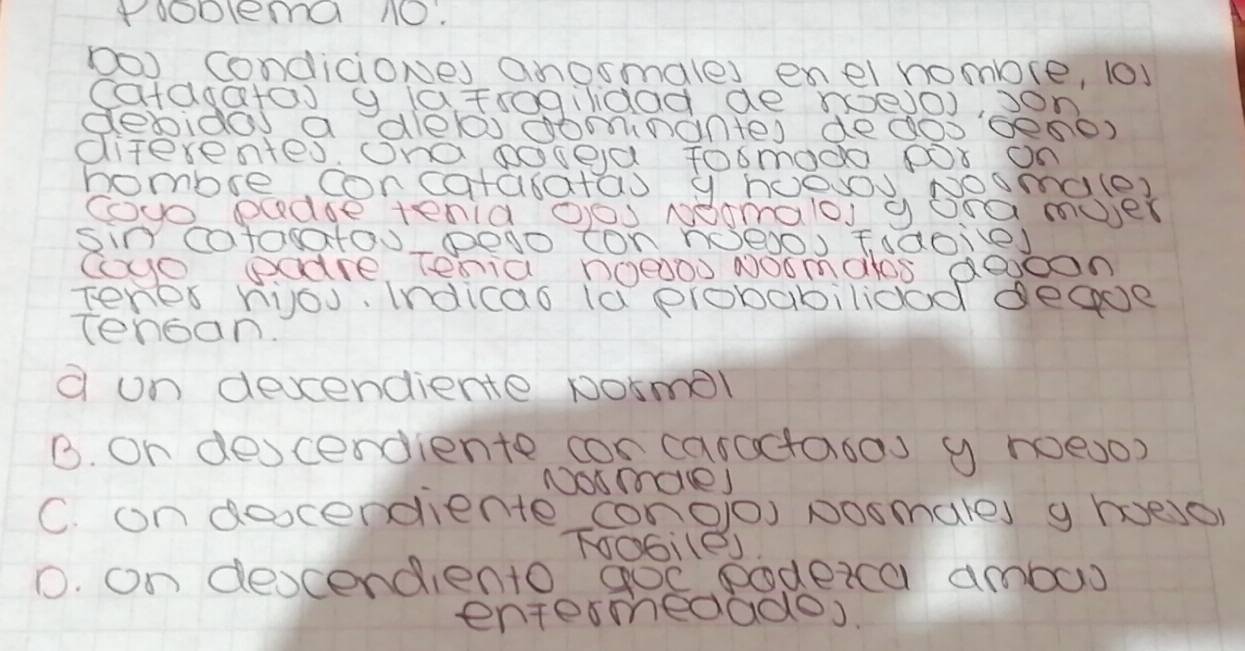 Problema 10.
Dos condiciones anormales en el hombre, los
cataratas y la fragilidad de huesos, son
debidas a alelos dominantes de dos genes
diferentes. Una pareja formada por un
hombre con cataratas y huesos normales
cuyo padre tenía ojos normales y una mujer
sin cataratas pero con huesos frágiles
cuyo padre tenía huesos normales desean
tener hijos. Indicar la probabilidad de que
Tengan.
a un descendiente normal
B. un descendiente con caractaras y huesos
normales
C. un descendiente con ojos normales y huesos
Fragiles.
D. un descendiente que padezca ambas
enfermedades.